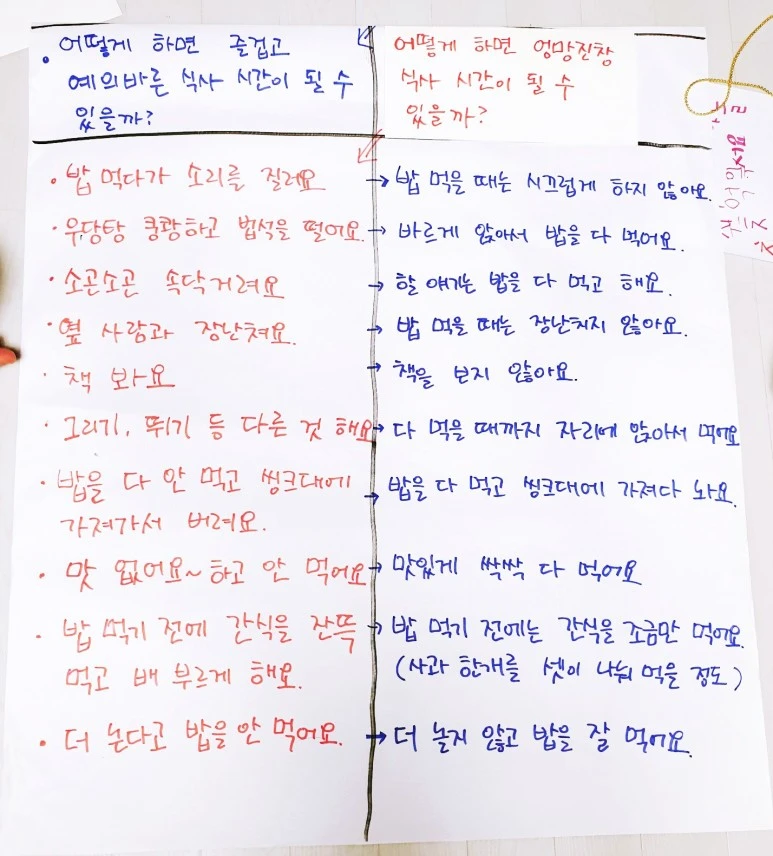 • 어떻게 하면 즐겁고
예의바른 식사 시간이 될 수
있을까?
어떻게 하면 엉망진창
식사 시간이 될 수
있을까?
• 밥 먹다가 소리를 질러요 → 밥 먹을 때는 시끄럽게 하지 않아요.
• 우당탕 쿵쾅하고 법석을 떨어요. → 바르게 앉아서 밥을 다 먹어요.
• 소곤소곤 속닥거려요 → 할 얘기는 밥을 다 먹고 해요.
• 옆 사람과 장난쳐요. → 밥 먹을 때는 장난치지 않아요.
• 책 봐요 → 책을 보지 않아요.
• 그리기, 뛰기 등 다른 것 해요 → 다 먹을 때까지 자리에 앉아서 먹어요
• 밥을 다 안 먹고 씽크대에
가져가서 버려요.
→ 밥을 다 먹고 씽크대에 가져다 놔요.
• 맛 없어요~하고 안 먹어요 → 맛있게 싹싹 다 먹어요
• 밥 먹기 전에 간식을 잔뜩
먹고 배 부르게 해요.
→ 밥 먹기 전에는 간식을 조금만 먹어요.
(사과 한개를 셋이 나눠 먹을 정도)
• 더 논다고 밥을 안 먹어요. → 더 놀지 않고 밥을 잘 먹어요.